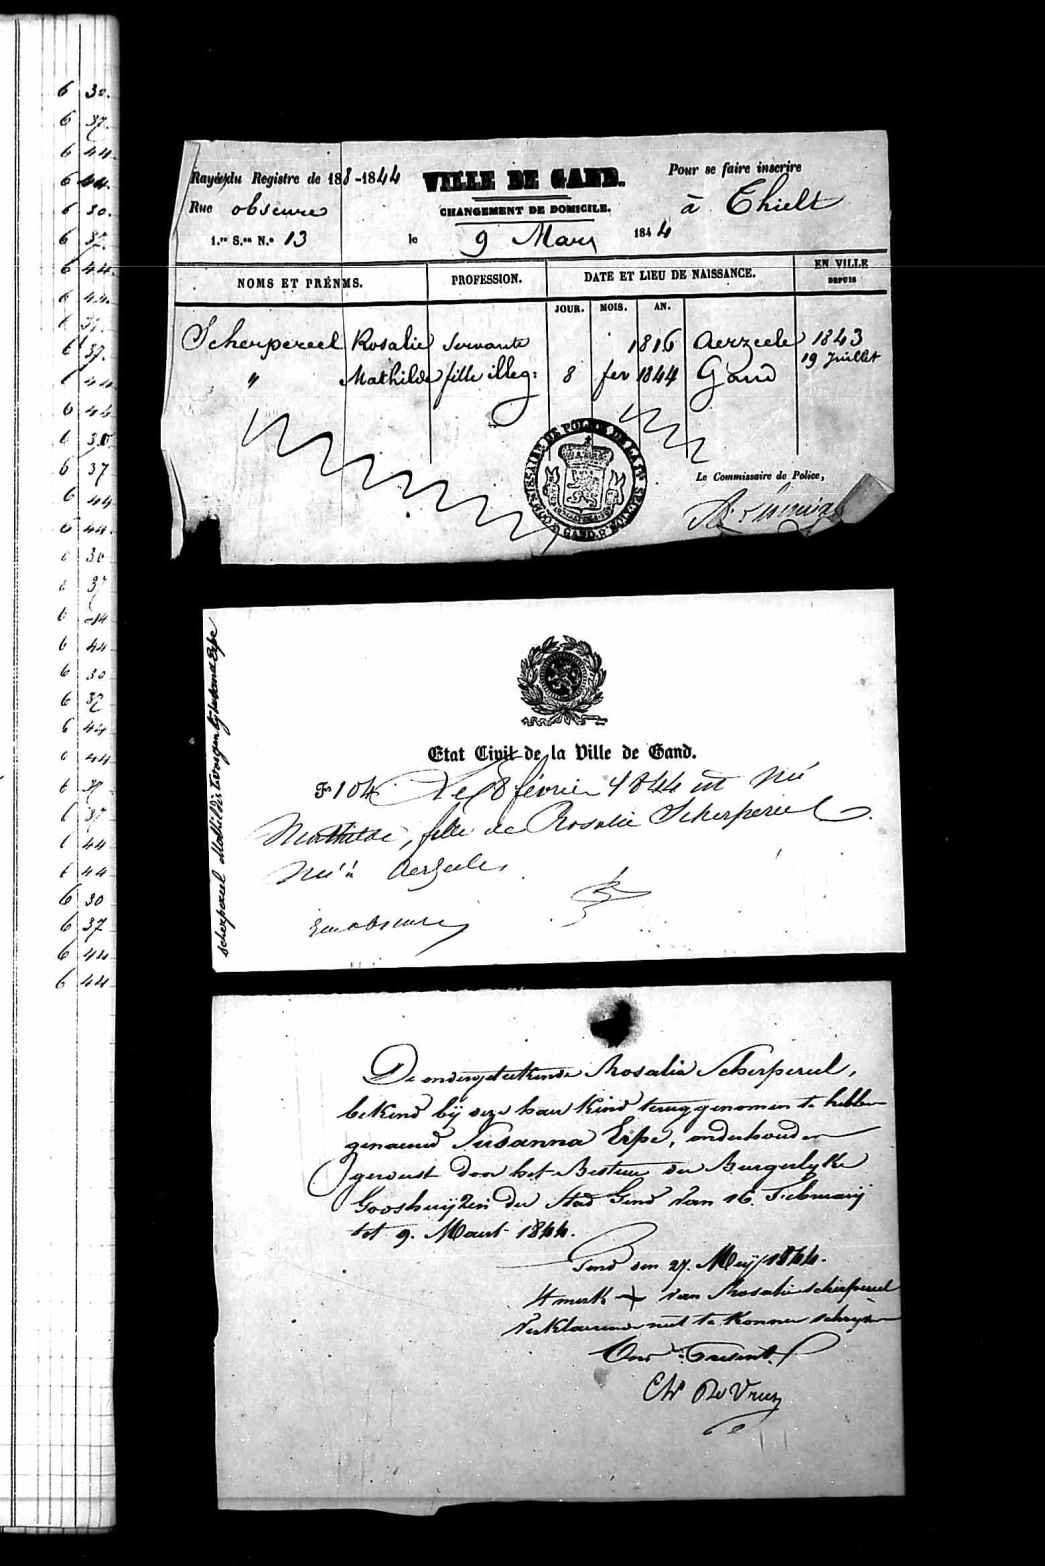 6 30.
6 37.
6 44
6 44.
6 30.
6 37.
6 44.
6 44.
6 37.
6 37.
6 44
6 44
6 30
6 37
6 44
6 44.
6 30
6 37
6 44
6 44
6 30
6 37
6 44
6 44
6 30
6 37
6 44
6 44
6 30
6 37
6 44
6 44
Rayé du Registre de 183-1844
VILLE DE GAND.
Pour se faire inscrire
Rue obscure
CHANGEMENT DE DOMICILE.
à Thielt
1.re S.on N.o 13
le 9 Mars 1844
NOMS ET PRÉNMS.
PROFESSION.
DATE ET LIEU DE NAISSANCE.
EN VILLE DEPUIS
JOUR. MOIS. AN.
Scherpereel Rosalie servante 1816 Aerzeele 1843
19 Juillet
" Mathilde fille illeg: 8 fev 1844 Gand
COMMISSAIRE DE POLICE DE LA 1re SECTION GAND
Le Commissaire de Police,
Scherpereel Mathilde
Etat Civil de la Ville de Gand.
Fo 104 Le 8 février 1844 est né
Mathilde, fille de Rosalie Scherpereel
né à Aerzeele
Rue obscure
De ondergeteekende Rosalia Scherpereel,
bekend bij deze haer kind terug genomen te hebben
genaemd Susanna Erpe, onderhouden
geweest door het Bestuur der Burgerlyke
Godshuijzen der Stad Gend van 16. Februarij
tot 9. Maert 1844.
Gend den 27. Meij 1844.
t'merk + van Rosalie scherpereel
verklarende niet te konnen schryven
Ons Present.
Ch De Vreez